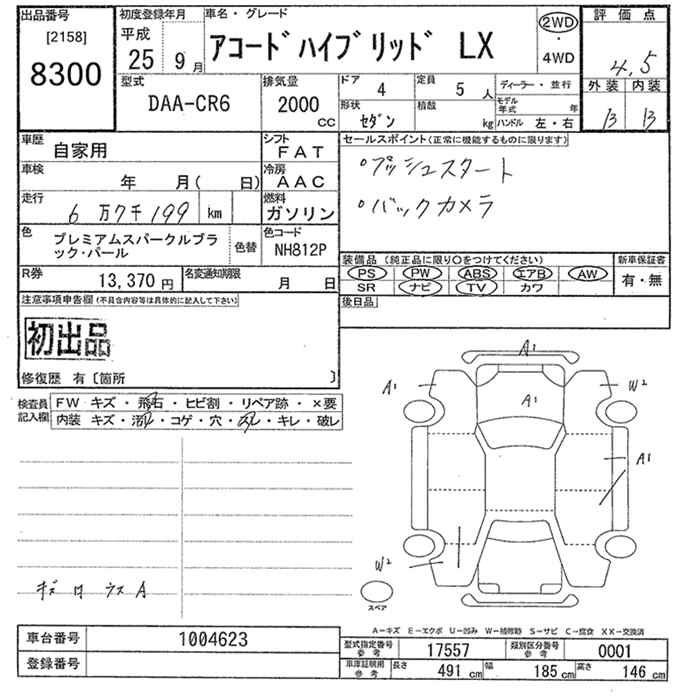 出品番号
[2158]
8300
初度登録年月
平成
25 9 月
車名・グレード
アコードハイブリッド LX
2WD
4WD
評価点
4.5
外装 内装
B B
型式
DAA-CR6
排気量
2000
CC
ドア 4
定員 5 人
形状 セダン
積載 kg
ディーラー・並行
モデル年式 年
ハンドル 左・右
車歴 自家用
シフト FAT
車検 年 月( 日)
冷房 AAC
走行 6 万 7 千 199 km
燃料 ガソリン
色 プレミアムスパークルブラック・パール
色替
色コード NH812P
R券 13,370 円
名変通知期限 月 日
セールスポイント(正常に機能するものに限ります)
○プッシュスタート
○バックカメラ
装備品(純正品に限り○をつけてください)
新車保証書
PS PW ABS エアB AW
SR ナビ TV カワ
有・無
後日品
注意事項申告欄(不具合内容等は具体的に記入して下さい)
初出品
修復歴 有〔箇所 〕
検査員記入欄
FW キズ・飛石・ヒビ割・リペア跡・×要
内装 キズ・汚れ・コゲ・穴・スレ・キレ・破レ
A1
A1
W2
A1
A1
W2
スペア
A-キズ E-エクボ U-凹み W-補修跡 S-サビ C-腐食 XX-交換済
車台番号 1004623
登録番号
型式指定番号 参考 17557
類別区分番号 参考 0001
車庫証明用 参考
長さ 491 cm
幅 185 cm
高さ 146 cm